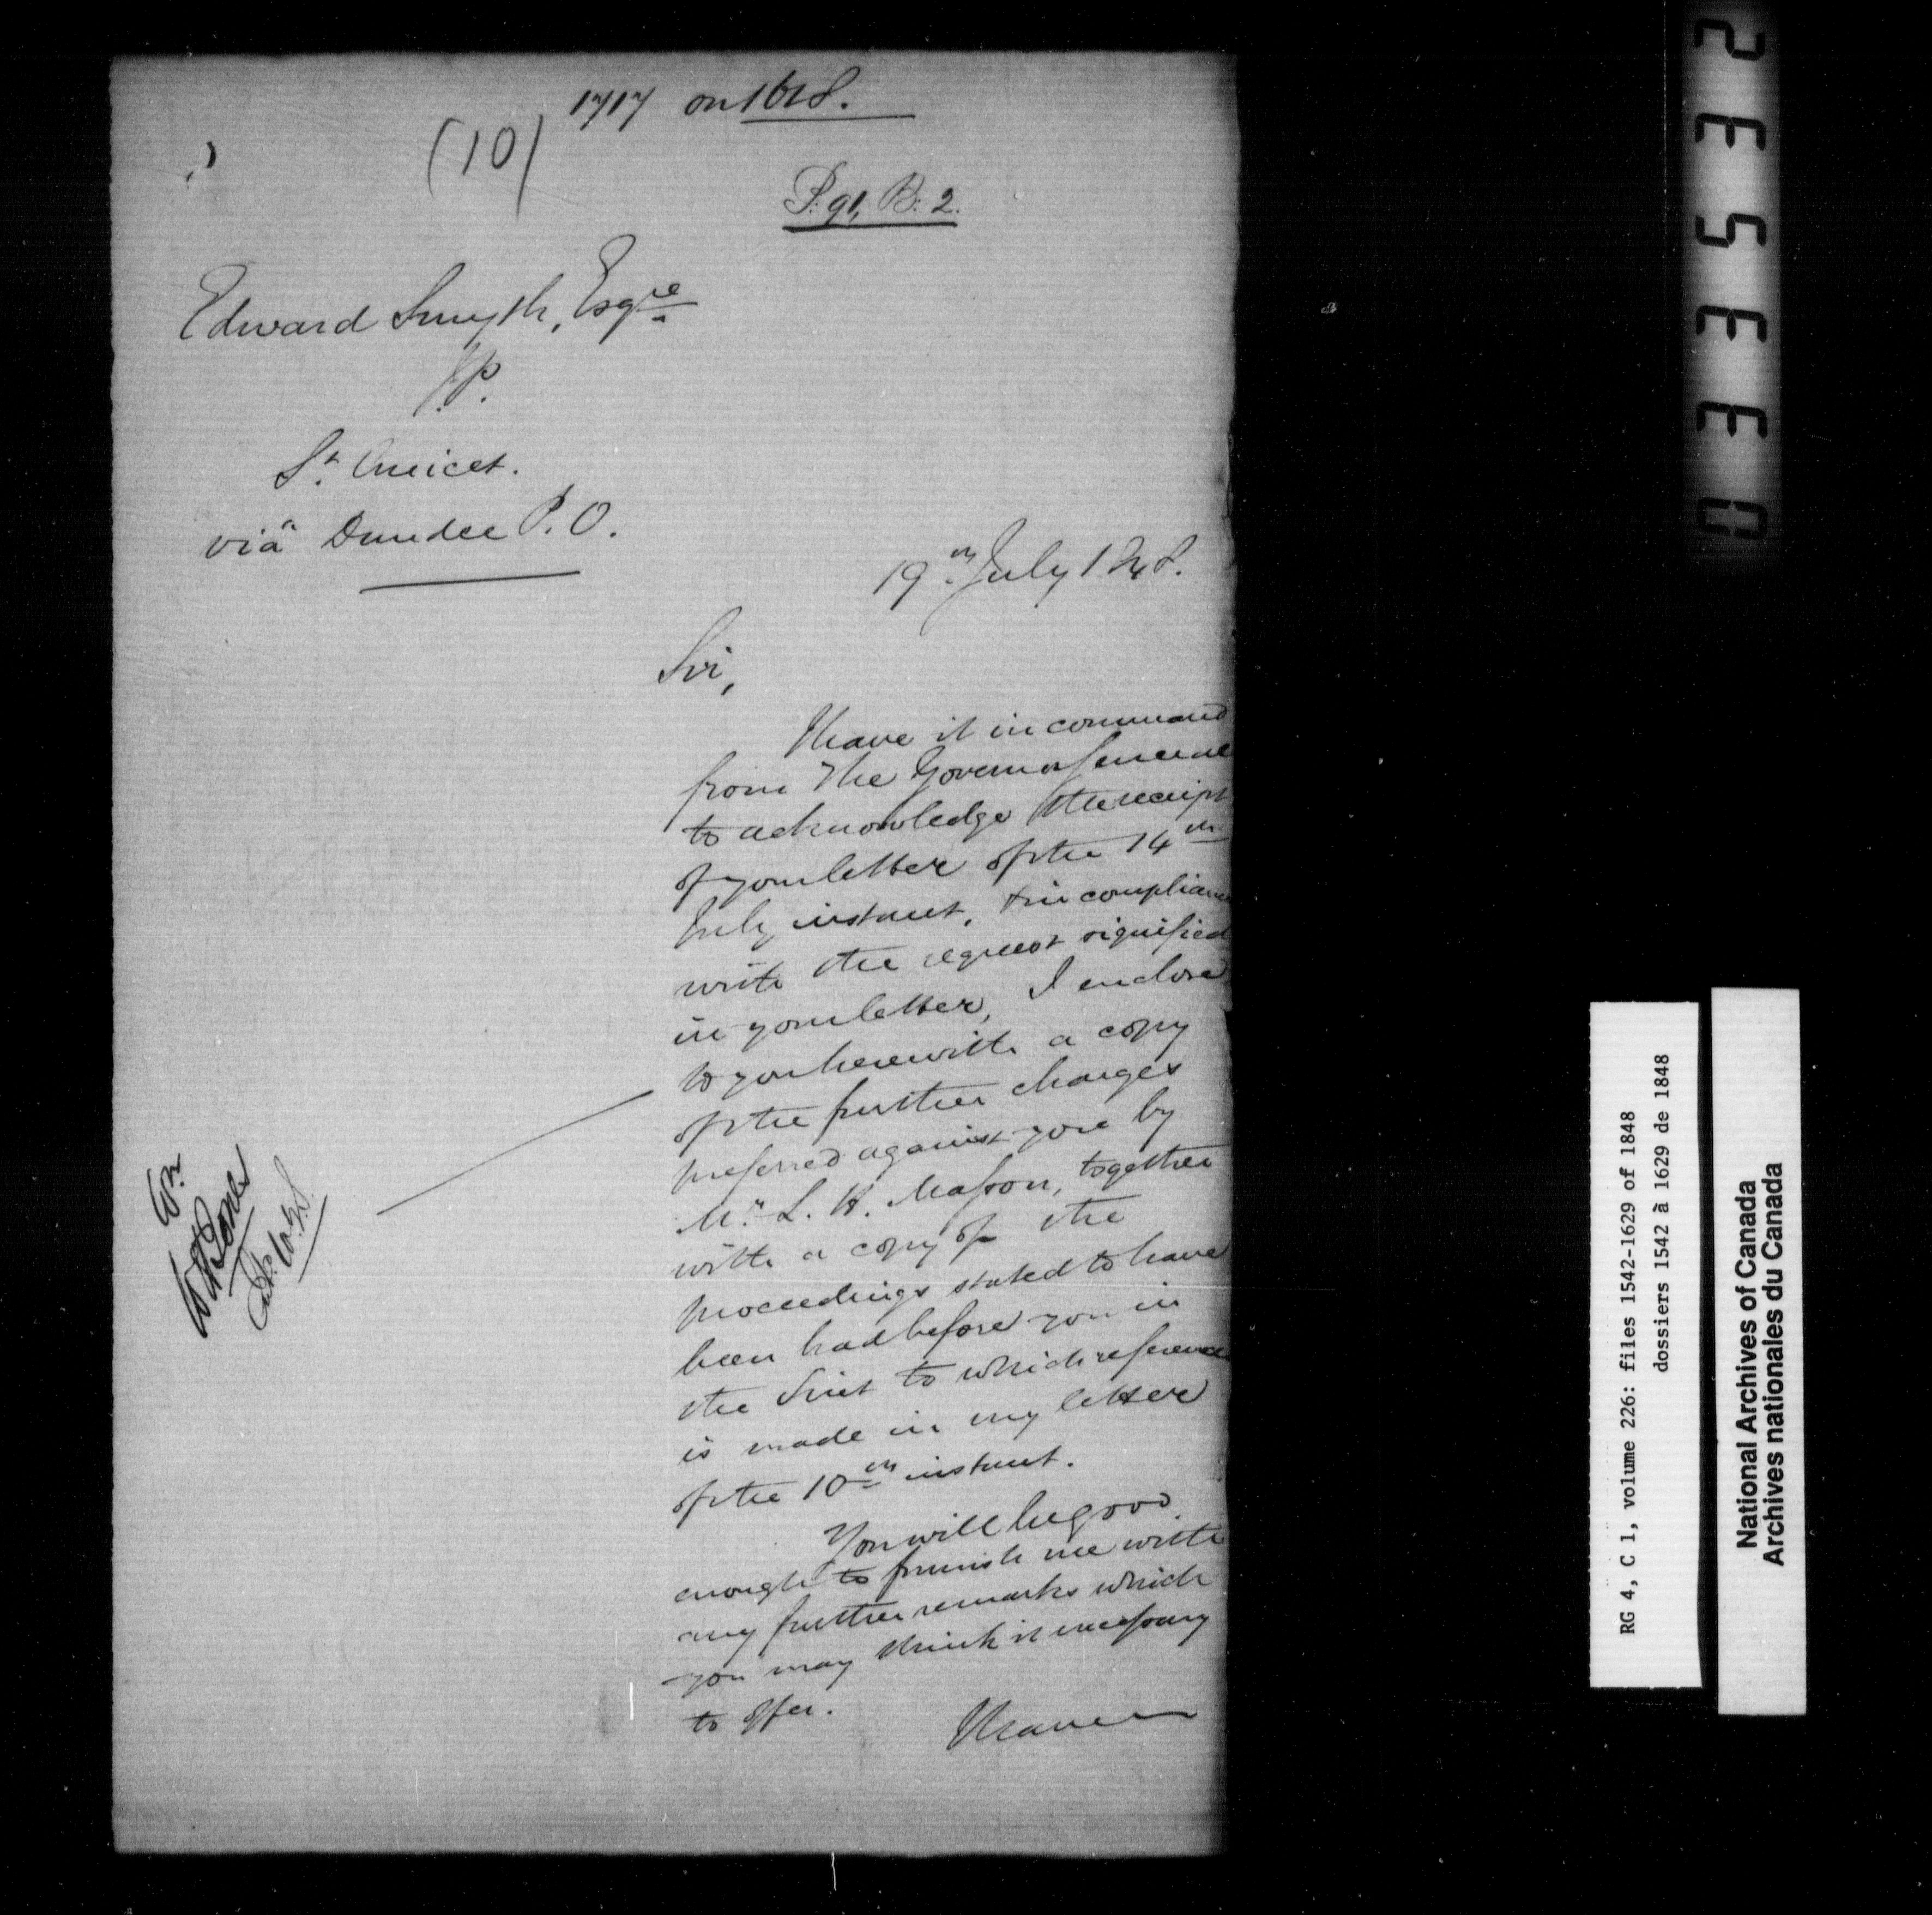 1717 on 1618.
(10)
P. 91, B. 2.
Edward Smyth, Esqre
J.P.
St. Anicet.
viâ Dundee P.O.
19th July 1848.
Sir,
I have it in command
from The Governor General
to acknowledge the receipt
of your letter of the 14th
July instant, & in compliance
with the request signified
in your letter, I enclose
to you herewith a copy
of the further charges
preferred against you by
Mr. L. H. Masson, together
with a copy of the
proceedings stated to have
been had before you in
the Suit to which reference
is made in my letter
of the 10th instant.
You will be good
enough to furnish me with
any further remarks which
you may think it necessary
to offer.
I have
0 3 3 5 3 2
RG 4, C 1, volume 226: files 1542-1629 of 1848
dossiers 1542 à 1629 de 1848
National Archives of Canada
Archives nationales du Canada